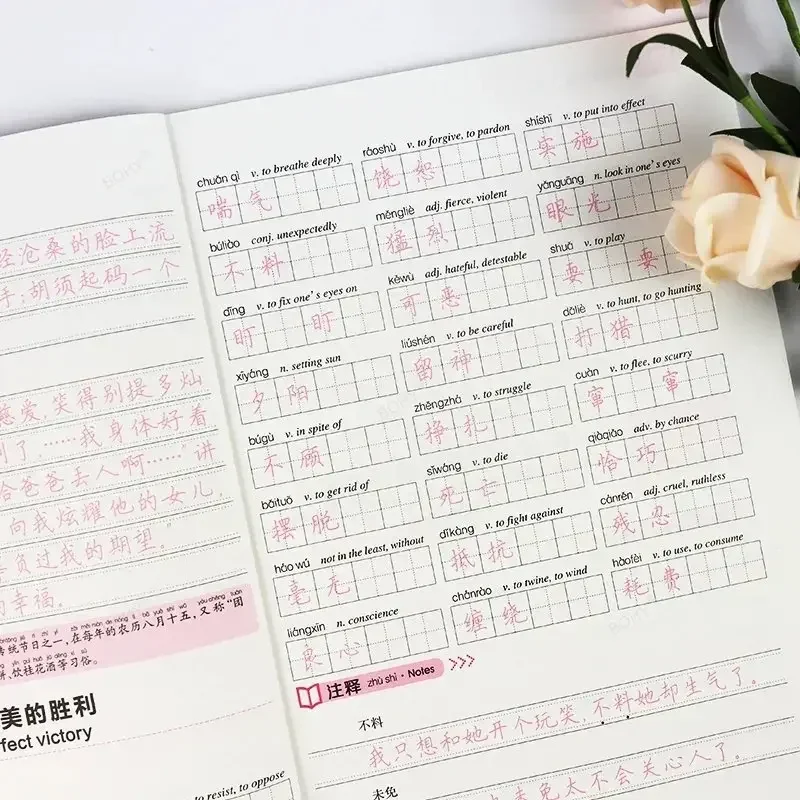 经沧桑的脸上流
手;胡须起码一个
慈爱,笑得别提多灿
到了……我身体好着
给爸爸丢人啊……”讲
向我炫耀他的女儿,
负过我的期望。”
的幸福。
传统节日之一,在每年的农历八月十五,又称“团
饼、饮桂花酒等习俗。
美的胜利
fect victory
to resist, to oppose
chuǎn qì v. to breathe deeply
喘 气
búliào conj. unexpectedly
不 料
dīng v. to fix one's eyes on
盯 盯
xīyáng n. setting sun
夕 阳
búgù v. in spite of
不 顾
bǎituō v. to get rid of
摆 脱
háo wú not in the least, without
毫 无
liángxīn n. conscience
良 心
ráoshù v. to forgive, to pardon
饶 恕
měngliè adj. fierce, violent
猛 烈
kěwù adj. hateful, detestable
可 恶
liúshén v. to be careful
留 神
zhēngzhá v. to struggle
挣 扎
sǐwáng v. to die
死 亡
dǐkàng v. to fight against
抵 抗
chánrào v. to twine, to wind
缠 绕
shíshī v. to put into effect
实 施
yǎnguāng n. look in one's eyes
眼 光
shuǎ v. to play
耍 耍
dǎliè v. to hunt, to go hunting
打 猎
cuàn v. to flee, to scurry
窜 窜
qiàqiǎo adv. by chance
恰 巧
cánrěn adj. cruel, ruthless
残 忍
hàofèi v. to use, to consume
耗 费
注释 zhù shì · Notes
不料
我只想和她开个玩笑,不料她却生气了。
未免
未免太不会关心人了。